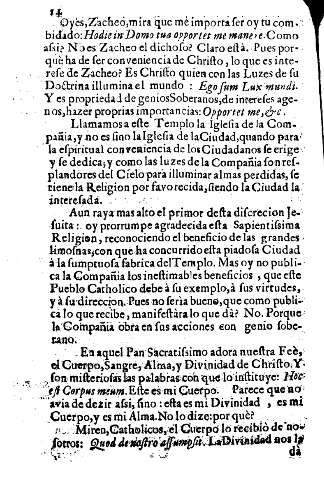 14
Oyes, Zacheo, mira que me importa ser oy tu com-
bidado: Hodie in Domo tua oportet me manere. Como
assi? No es Zacheo el dichoso? Claro està. Pues por-
què ha de ser conveniencia de Christo, lo que es inte-
rese de Zacheo? Es Christo quien con las Luzes de su
Doctrina illumina el mundo: Ego sum Lux mundi.
Y es propriedad de genios Soberanos, de intereses age-
nos, hazer proprias importancias: Oportet me, &c.
Llamamos a este Templo la Iglesia de la Com-
pañia, y no es sino la Iglesia de la Ciudad, quando para
la espiritual conveniencia de los Ciudadanos se erige
y se dedica; y como las luzes de la Compañia son res-
plandores del Cielo para illuminar almas perdidas, se
tiene la Religion por favorecida, siendo la Ciudad la
interesada.
Aun raya mas alto el primor desta discrecion Je-
suita: oy prorrumpe agradecida esta Sapientissima
Religion, reconociendo el beneficio de las grandes
limosnas, con que ha concurrido esta piadosa Ciudad
à la sumptuosa fabrica del Templo. Mas oy no publi-
ca la Compañia los inestimables beneficios, que este
Pueblo Catholico debe à su exemplo, à sus virtudes,
y à su direccion. Pues no seria bueno, que como publi-
ca lo que recibe, manifestàra lo que dà? No. Porque
la Compañia obra en sus acciones con genio sobe-
rano.
En aquel Pan Sacratissimo adora nuestra Feè,
el Cuerpo, Sangre, Alma, y Divinidad de Christo. Y
son misteriosas las palabras con que lo instituye: Hoc
est Corpus meum. Este es mi Cuerpo. Parece que no
avia de dezir assi, sino: esta es mi Divinidad, es mi
Cuerpo, y es mi Alma. No lo dize: por què?
Miren, Catholicos, el Cuerpo lo recibiò de no-
sotros: Quod de nostro assumpsit. La Divinidad nos la
dà